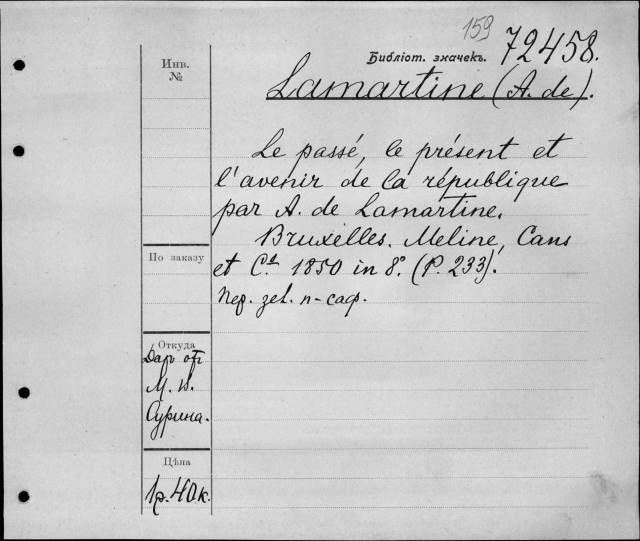 159
Библіот. значекъ. 72458.
Инв.
№
Lamartine (A. de).
Le passé, le présent et
l'avenir de la république
par A. de Lamartine.
Bruxelles. Meline, Cans
По заказу
et Cᵉ. 1850 in 8°. (P. 233).
Пер. зел. п-саф.
Откуда
Даръ отъ
М. И.
Сурина.
Цѣна
1р. 40к.